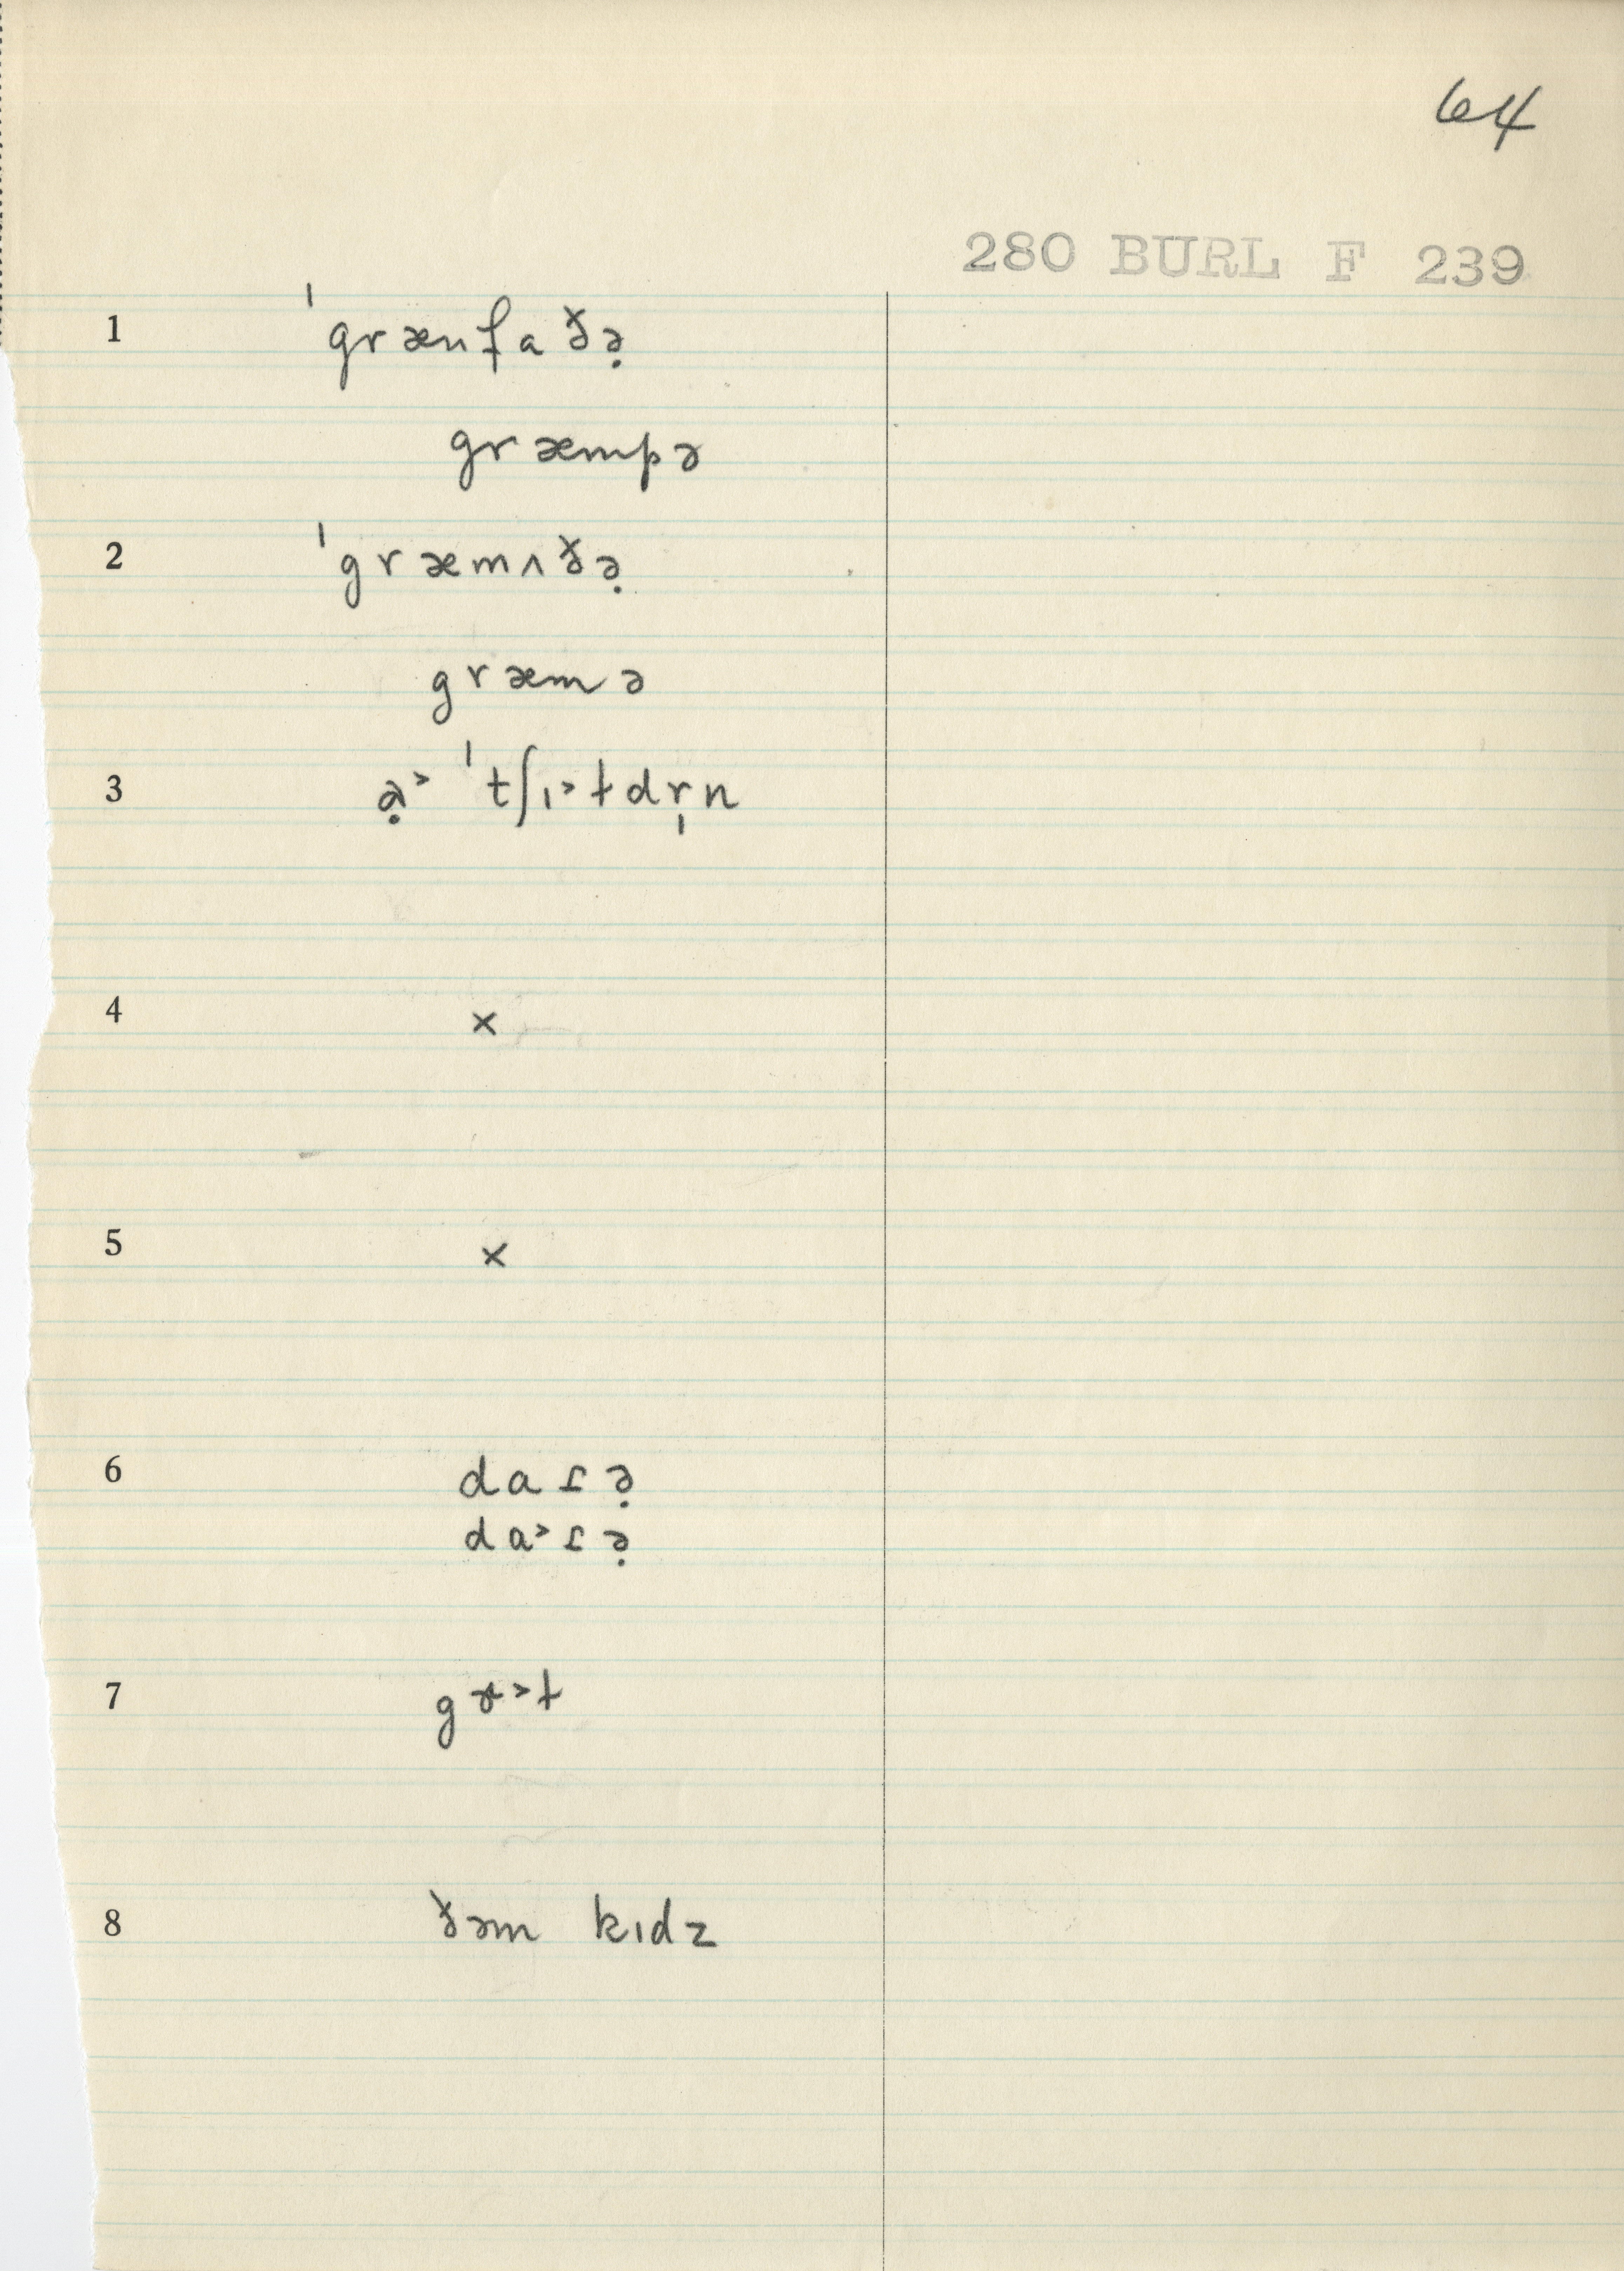 64
280 BURL F 239
1 ˈgrænfaðə̣
græmpə
2 ˈgræmʌðə̣
græmə
3 ɑ̣˃ ˈtʃɪ˃ɫdr̩n
4 ×
5 ×
6 daɾə̣
da˃ɾə̣
7 gɤ˃ɫ
8 ðəm kɪdz